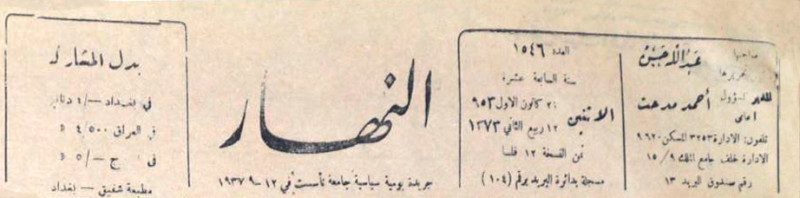 صاحبها عبدالله حسين
المدير المسؤول أحمد مدحت
تلفون: الادارة ٣٢٥٣ المسكن ٩٦٢٠
الادارة خلف جامع الملك ١٥/٩
رقم صندوق البريد ١٣
العدد ١٥٤٦
سنة السابعة عشرة
الاثنين
كانون الاول ٩٥٣
١٢ ربيع الثاني ١٣٧٣
ثمن النسخة ١٢ فلسا
مسجلة بدائرة البريد برقم (١٠٤)
النهار
جريدة يومية سياسية جامعة تأسست في ١٢-٩-١٩٣٧
بدل المشترك
في بغداد -/٤
في العراق ٤/٥٠٠
في ج -/٥
مطبعة شفيق - بغداد